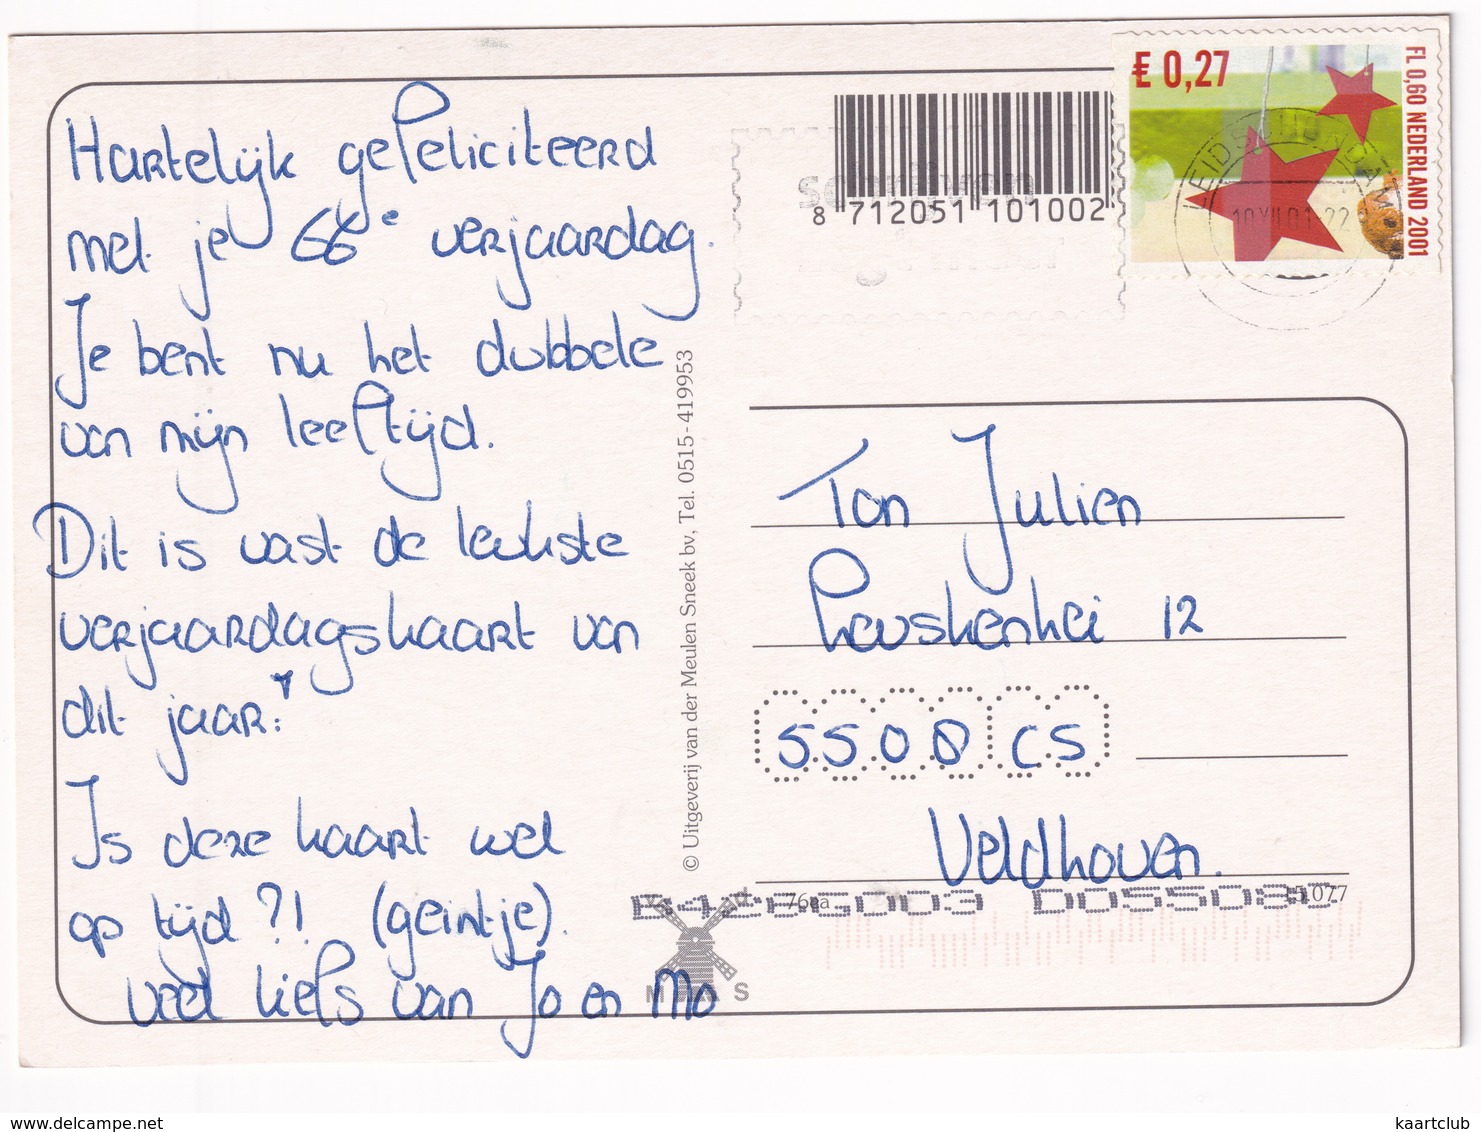 Hartelijk gefeliciteerd
met je 66e verjaardag.
Je bent nu het dubbele
van mijn leeftijd.
Dit is vast de leukste
verjaardagskaart van
dit jaar!
Is deze kaart wel
op tijd?! (geintje).
veel liefs van Jo en Mo
© Uitgeverij van der Meulen Sneek bv, Tel. 0515-419953
8 712051 101002
schrijven
€ 0,27
FL 0,60 NEDERLAND 2001
LEIDSCHENDAM
10.XII.01-22
Ton Julien
12
5508 CS
Veldhoven.
15.077
M S
delcampe.net
kaartclub